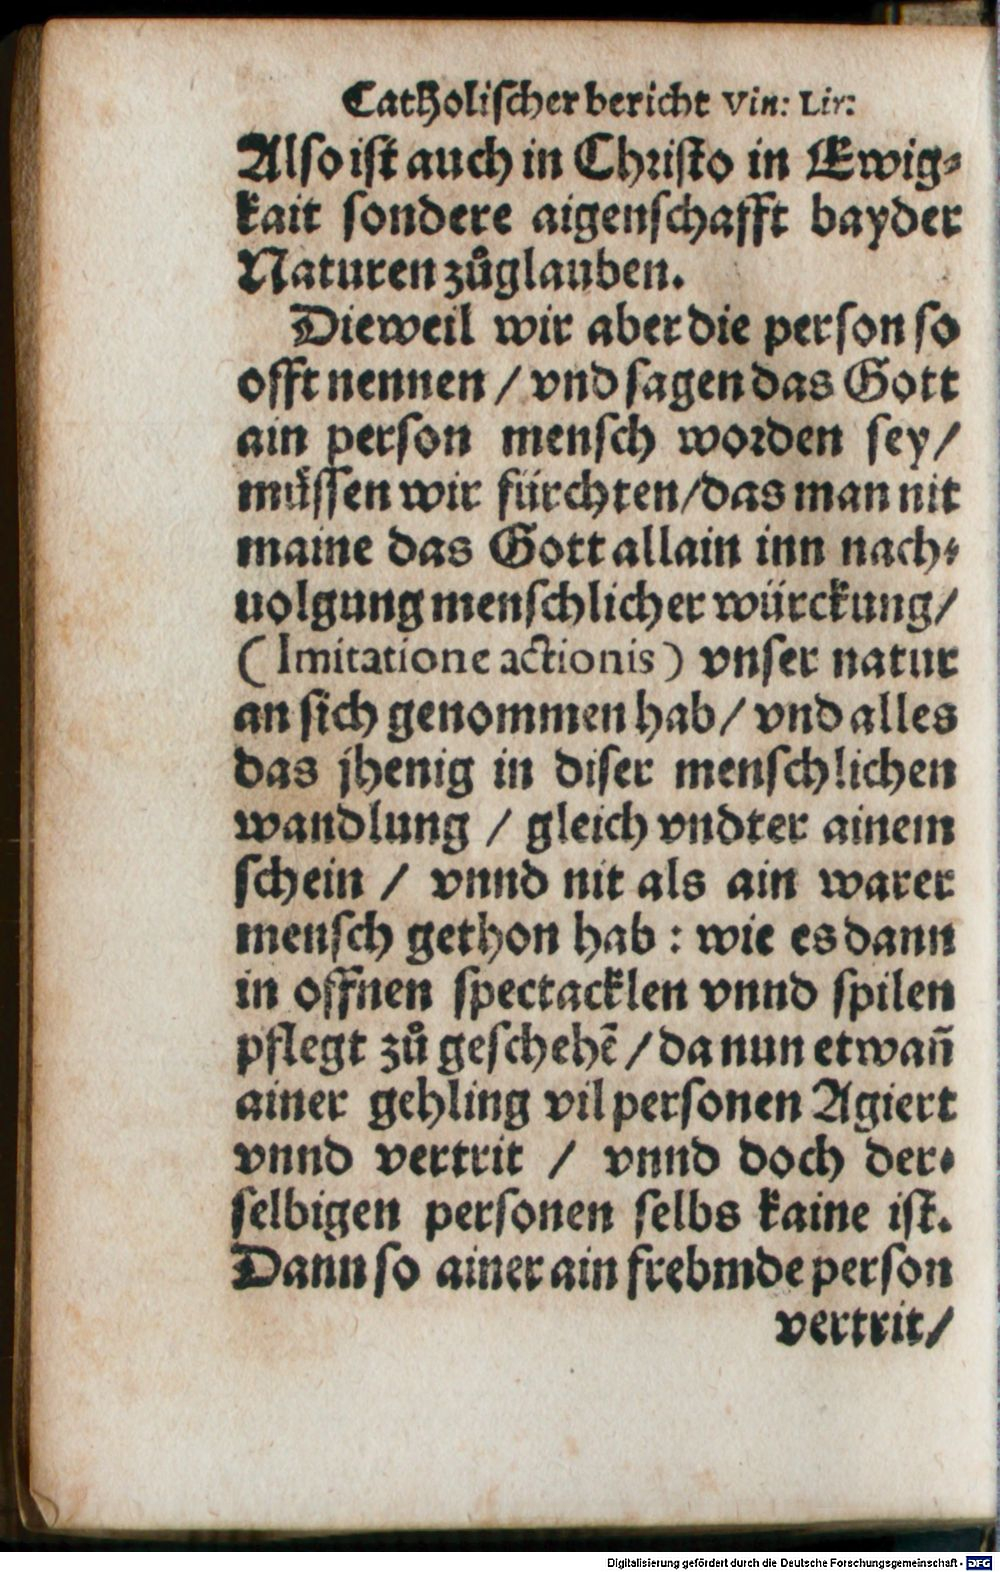 Catholischer bericht Vin: Lir:
Also ist auch in Christo in Ewig⸗
kait sondere aigenschafft bayder
Naturen zůglauben.
Dieweil wir aber die person so
offt nennen / vnd sagen das Gott
ain person mensch worden sey/
müssen wir fürchten/das man nit
maine das Gott allain inn nach⸗
uolgung menschlicher würckung/
(Imitatione actionis) vnser natur
an sich genommen hab / vnd alles
das jhenig in diser menschlichen
wandlung / gleich vndter ainem
schein / vnnd nit als ain warer
mensch gethon hab : wie es dann
in offnen spectacklen vnnd spilen
pflegt zů geschehē / da nun etwañ
ainer gehling vil personen Agiert
vnnd vertrit / vnnd doch der⸗
selbigen personen selbs kaine ist.
Dann so ainer ain frebmde person
vertrit/
Digitalisierung gefördert durch die Deutsche Forschungsgemeinschaft - DFG